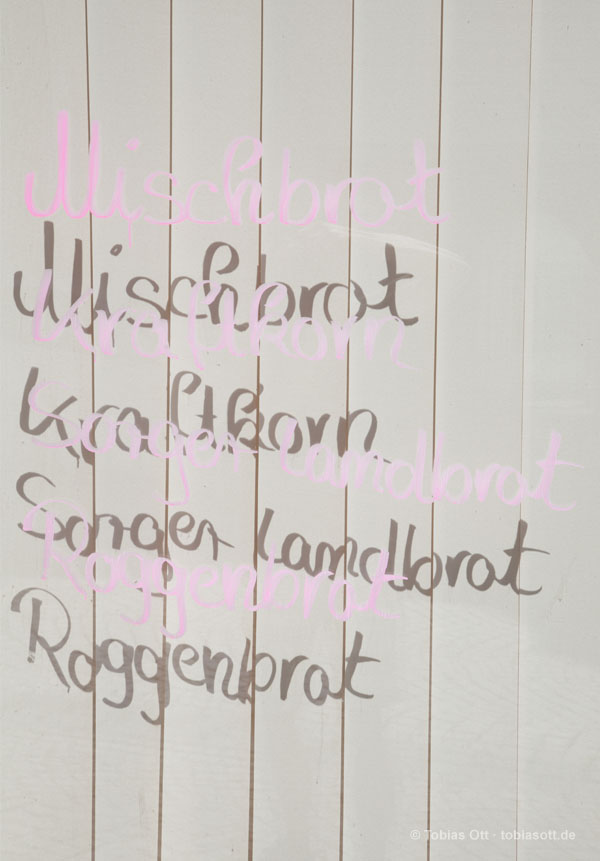 Mischbrot
Mischbrot
Kraftkorn
Kraftkorn
Sorger Landbrot
Sorger Landbrot
Roggenbrot
Roggenbrot
© Tobias Ott · tobiasott.de